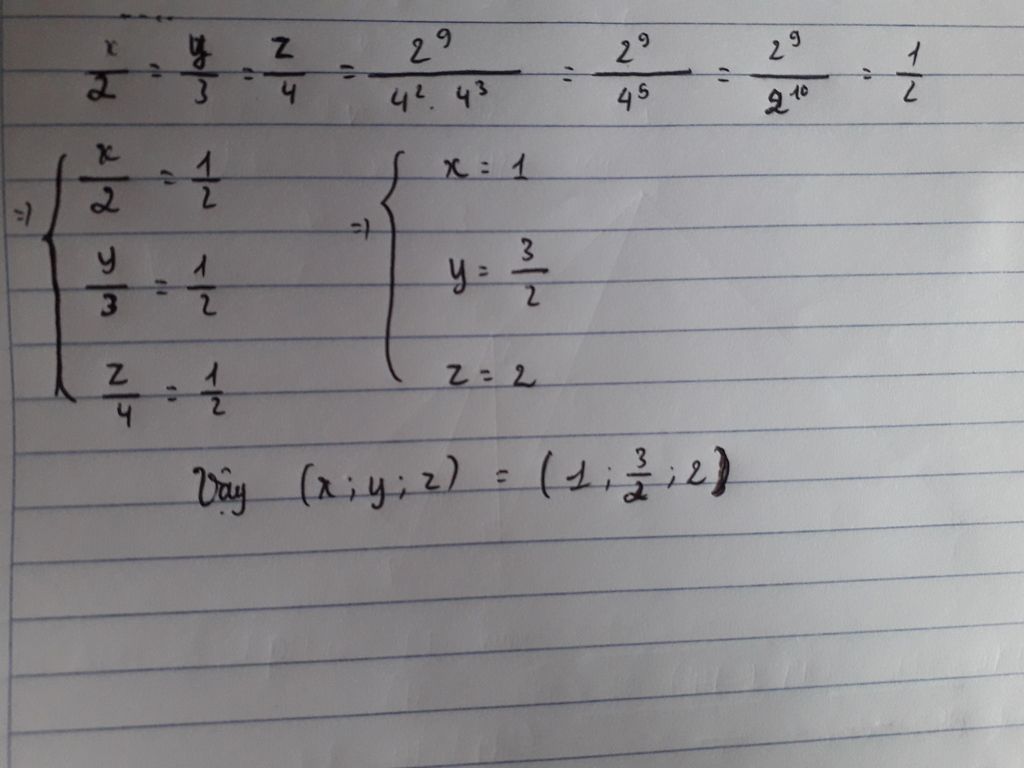 x/2 = y/3 = z/4 = 2⁹/(4². 4³) = 2⁹/4⁵ = 2⁹/2¹⁰ = 1/2
=> { x/2 = 1/2 => { x = 1
y/3 = 1/2 y = 3/2
z/4 = 1/2 z = 2
Vậy (x; y; z) = (1; 3/2; 2)